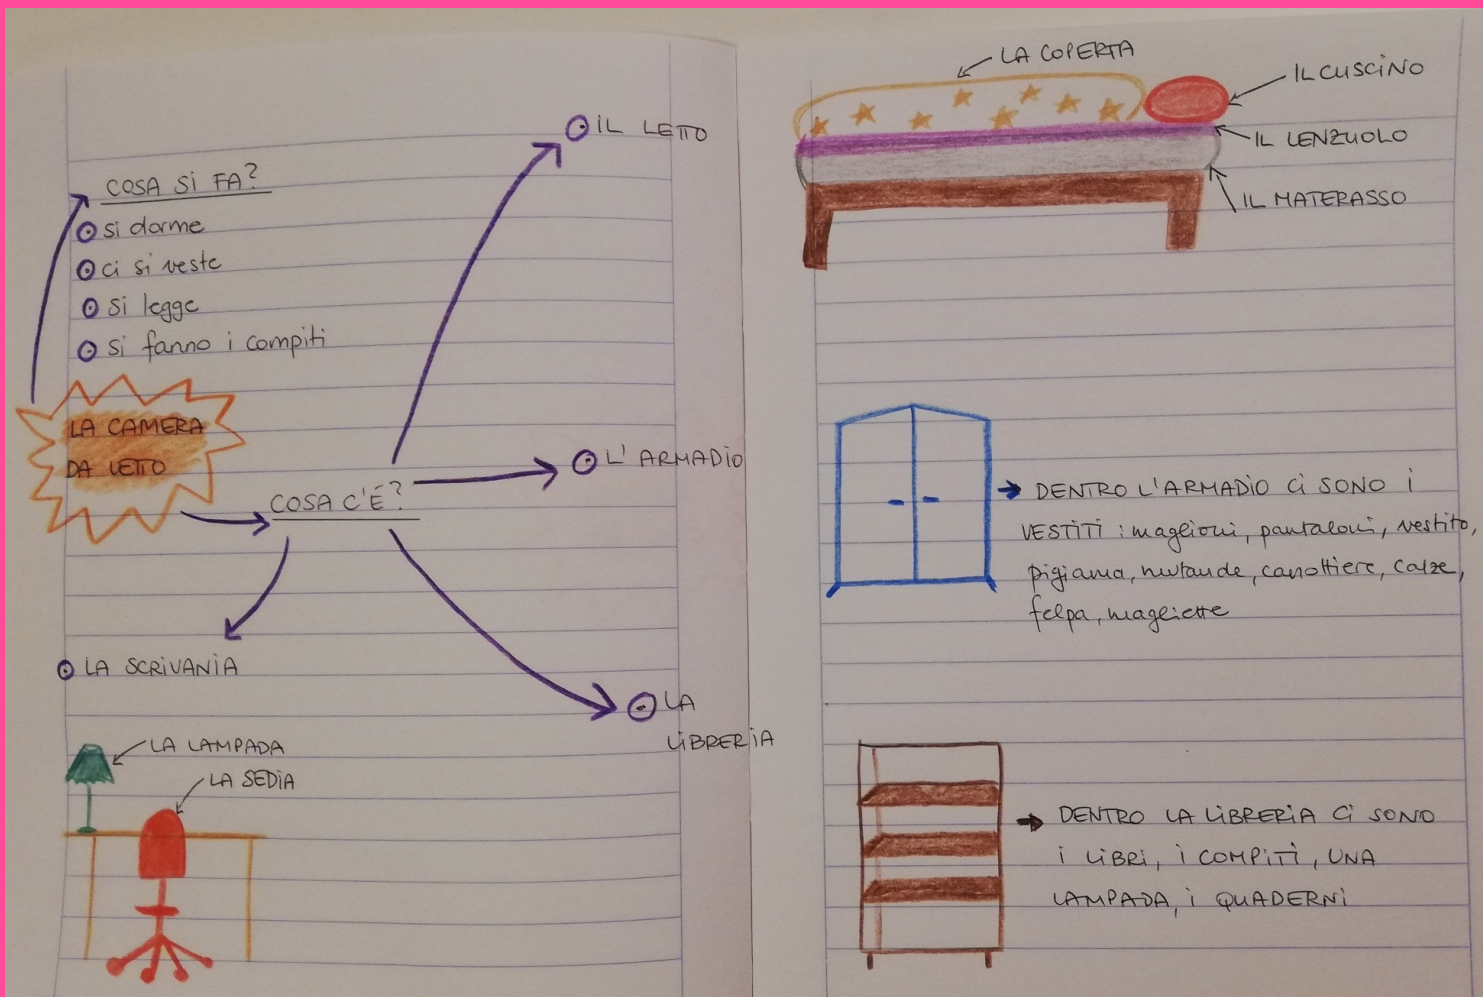 COSA SI FA?
si dorme
ci si veste
si legge
si fanno i compiti
LA CAMERA
DA LETTO
COSA C'È?
IL LETTO
L'ARMADIO
LA
LIBRERIA
LA SCRIVANIA
LA LAMPADA
LA SEDIA
LA COPERTA
IL CUSCINO
IL LENZUOLO
IL MATERASSO
DENTRO L'ARMADIO CI SONO I
VESTITI: maglioni, pantaloni, vestito,
pigiama, mutande, canottiere, calze,
felpa, magliette
DENTRO LA LIBRERIA CI SONO
I LIBRI, I COMPITI, UNA
LAMPADA, I QUADERNI